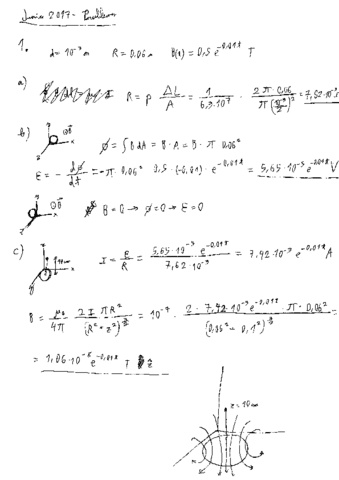 Junio 2017 - Problemas
1. d = 10⁻³ m R = 0,06 m B(t) = 0,5 e^(-0,01t) T
a) R = ρ ΔL/A = 1/(6,3·10⁷) · (2π 0,06)/(π(d/2)²) = 7,62·10⁻³
b) ⊙B⃗ x ∅ = ∫ B dA = B·A = B·π 0,06²
ε = - d∅/dt = -π·0,06² 0,5·(-0,01)·e^(-0,01t) = 5,65·10⁻⁵ e^(-0,01t) V
⊙B⃗ x B = 0 → ∅ = 0 → ε = 0
c) 10cm x I = ε/R = (5,65·10⁻⁵ e^(-0,01t))/(7,62·10⁻³) = 7,42·10⁻³ e^(-0,01t) A
B = μ₀/4π (2I πR²)/(R²+z²)^(3/2) = 10⁻⁷ · (2·7,42·10⁻³ e^(-0,01t) π·0,06²)/(0,06²-0,1²)^(3/2) =
= 1,06·10⁻⁸ e^(-0,01t) T ẑ
z=10cm